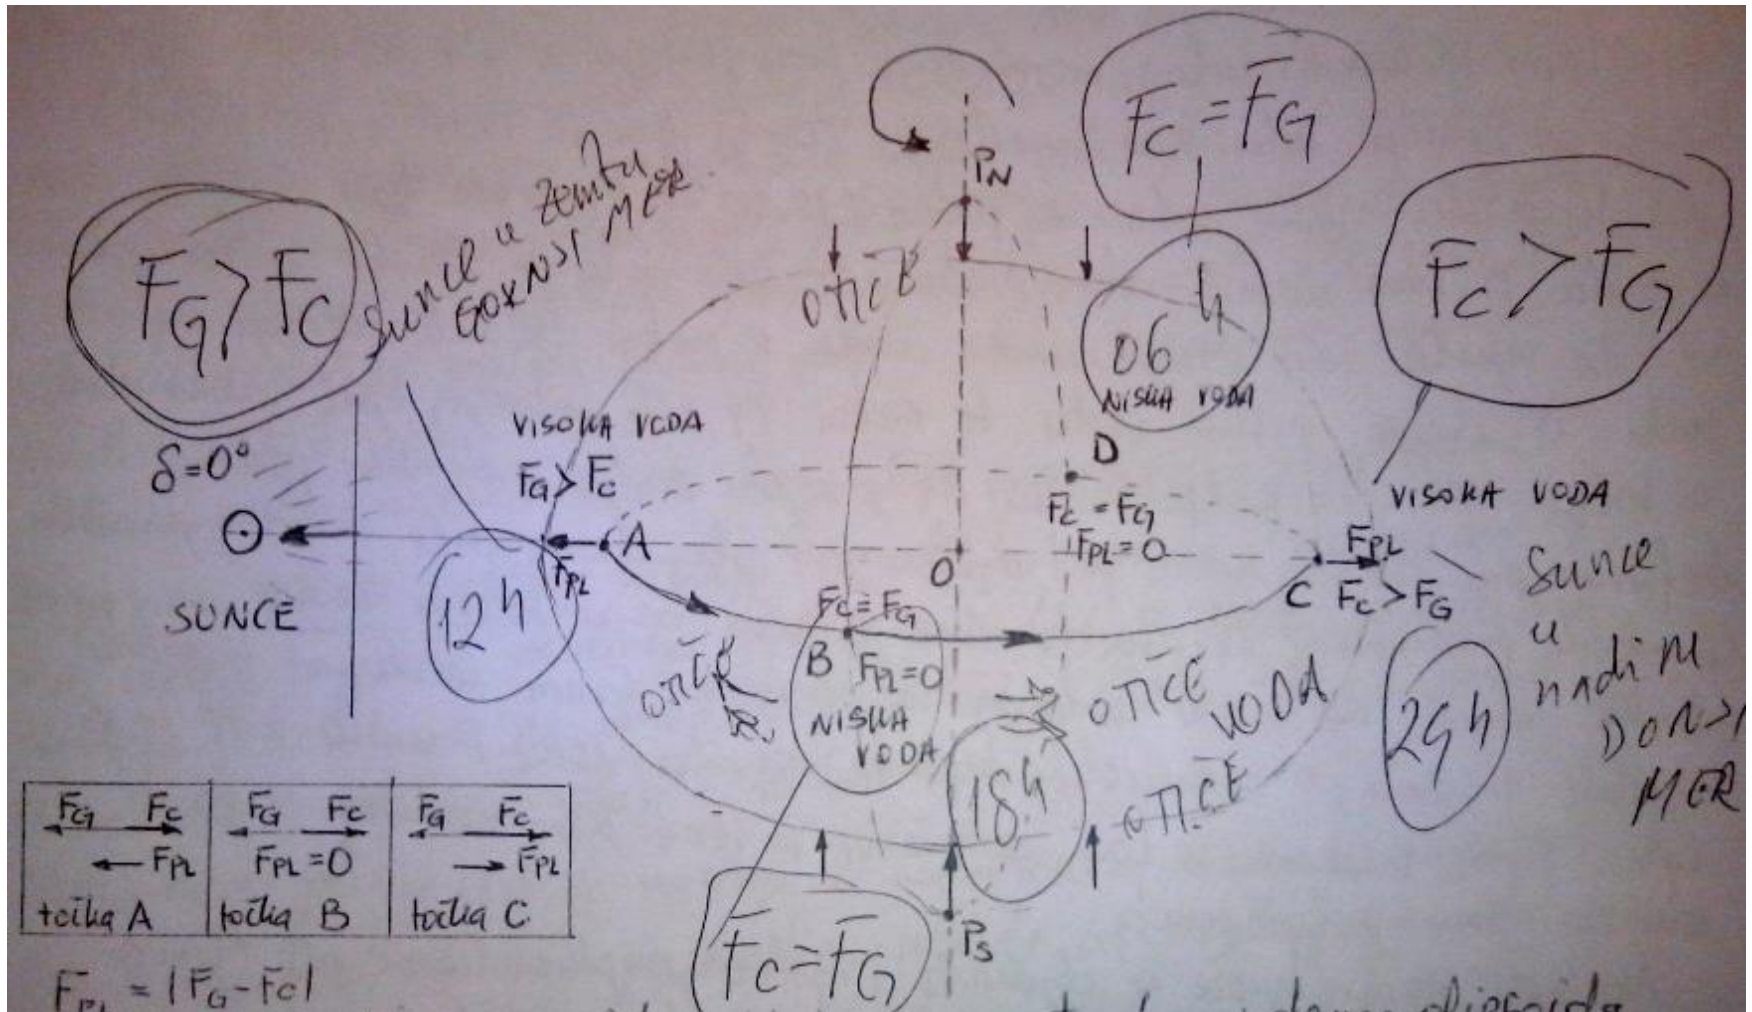 F̄c = F̄G
F̄G > F̄c
Sunce u zenitu
GORNJI MER.
PN
OTIČE
F̄c > F̄G
06 h
NISKA VODA
VISOKA VODA
F̄G > F̄c
δ=0°
SUNCE
A
F̄PL
12 h
D
F̄c = F̄G
F̄PL = 0
O
VISOKA VODA
F̄PL
C F̄c > F̄G
Sunce
u
nadiru
DONJI
MER
24 h
F̄c = F̄G
B F̄PL=0
NISKA
VODA
OTIČE
OTIČE
VODA
OTIČE
18 h
F̄G F̄c
F̄PL
točka A
F̄G F̄c
F̄PL = 0
točka B
F̄G F̄c
F̄PL
točka C
F̄c = F̄G
PS
F̄PL = |F̄G - F̄c|